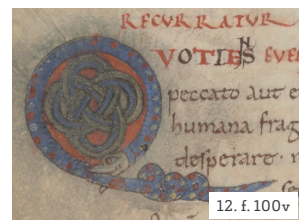 RECURRATUR
QVOTIENS EVE
peccato aut e
humana frag
desperare. n
12. f. 100v